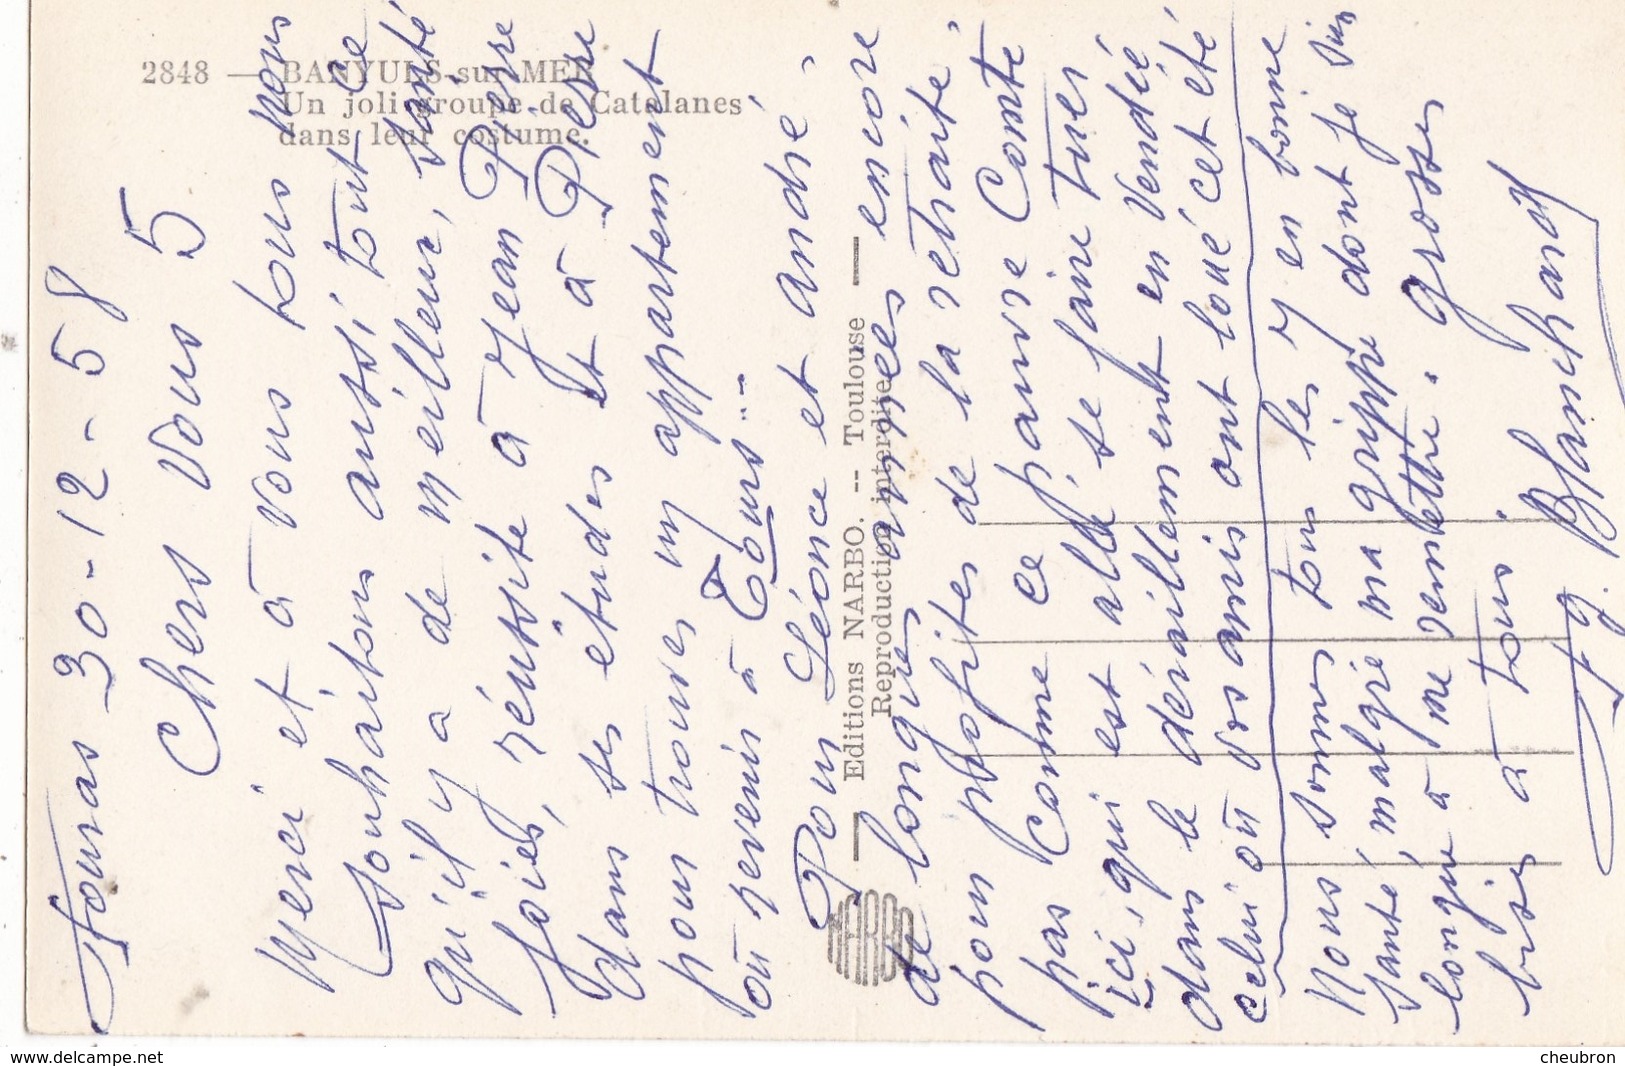 2848 — BANYULS-sur-MER
Un joli groupe de Catalanes
dans leur costume.
Editions NARBO. -- Toulouse
Reproduction interdite
Fouras 30-12-58
Chers Vous 5
Merci et à vous tous nous
souhaitons aussi tout ce
qu'il y a de meilleur, santé
joies, réussite à Jean Pierre
dans ses études et à Pierre
pour trouver un appartement
où revenir à Tours...
Pour Léonce et André,
de longues années encore
pour profiter de la retraite.
pas comme ce pauvre Comte
ici, qui est allé se faire tuer
dans le déraillement en Vendée
celui où vos amis ont loué cet été
Nous sommes tous les 7 en bonne
santé malgré ma grippe dont je suis
longue à me remettre. Grosses
bises à tous
J. Blanchard
www.delcampe.net
cheubron